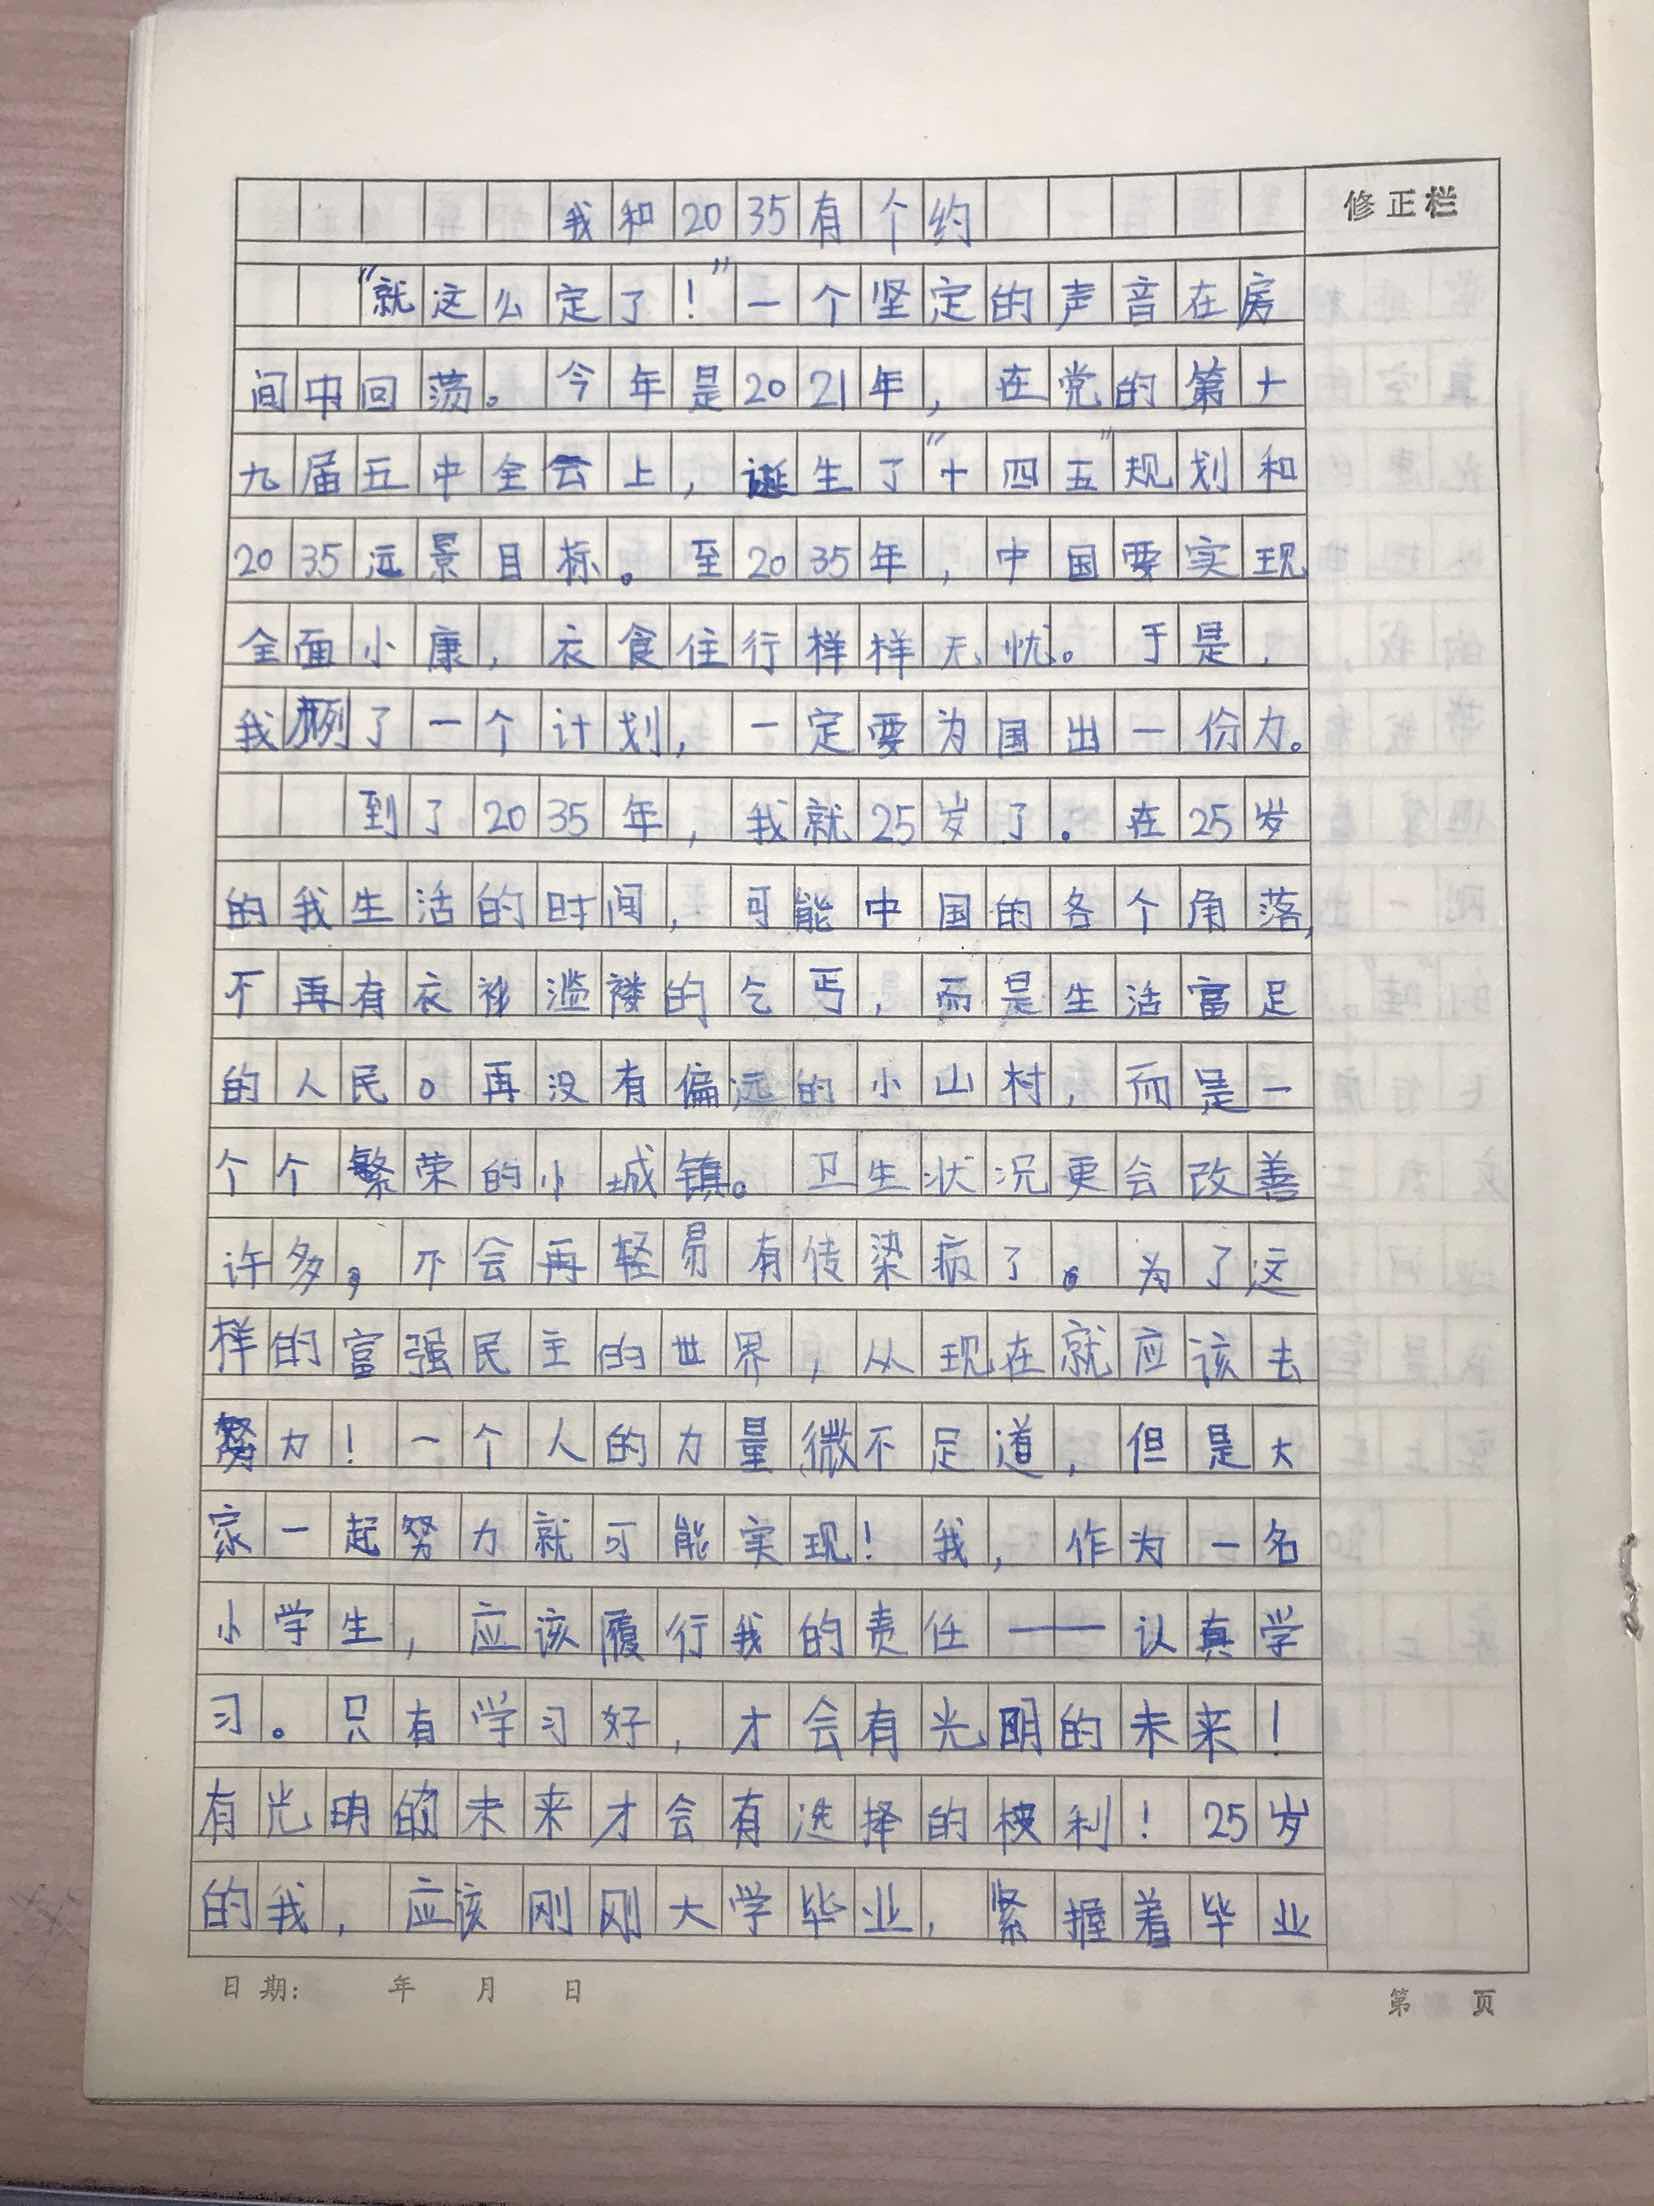 我和2035有个约
修正栏
“就这么定了！”一个坚定的声音在房
间中回荡。今年是2021年，在党的第十
九届五中全会上，诞生了“十四五”规划和
2035远景目标。至2035年，中国要实现
全面小康，衣食住行样样无忧。于是，
我列了一个计划，一定要为国出一份力。
到了2035年，我就25岁了。在25岁
的我生活的时间，可能中国的各个角落，
不再有衣衫滥褛的乞丐，而是生活富足
的人民。再没有偏远的小山村，而是一
个个繁荣的小城镇。卫生状况更会改善
许多，不会再轻易有传染病了。为了这
样的富强民主的世界，从现在就应该去
努力！一个人的力量微不足道，但是大
家一起努力就可能实现！我，作为一名
小学生，应该履行我的责任——认真学
习。只有学习好，才会有光明的未来！
有光明的未来才会有选择的权利！25岁
的我，应该刚刚大学毕业，紧握着毕业
日期： 年 月 日
第 页